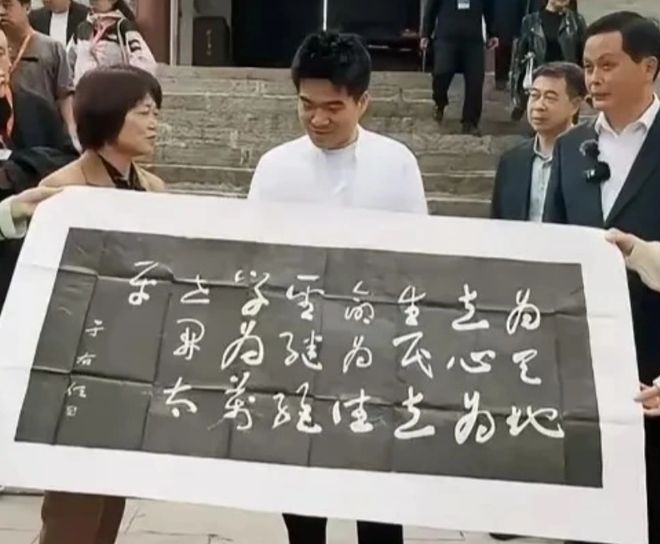 为天地
立心为
生民立
命为往
圣继绝
学为萬
世开太
平
于右任